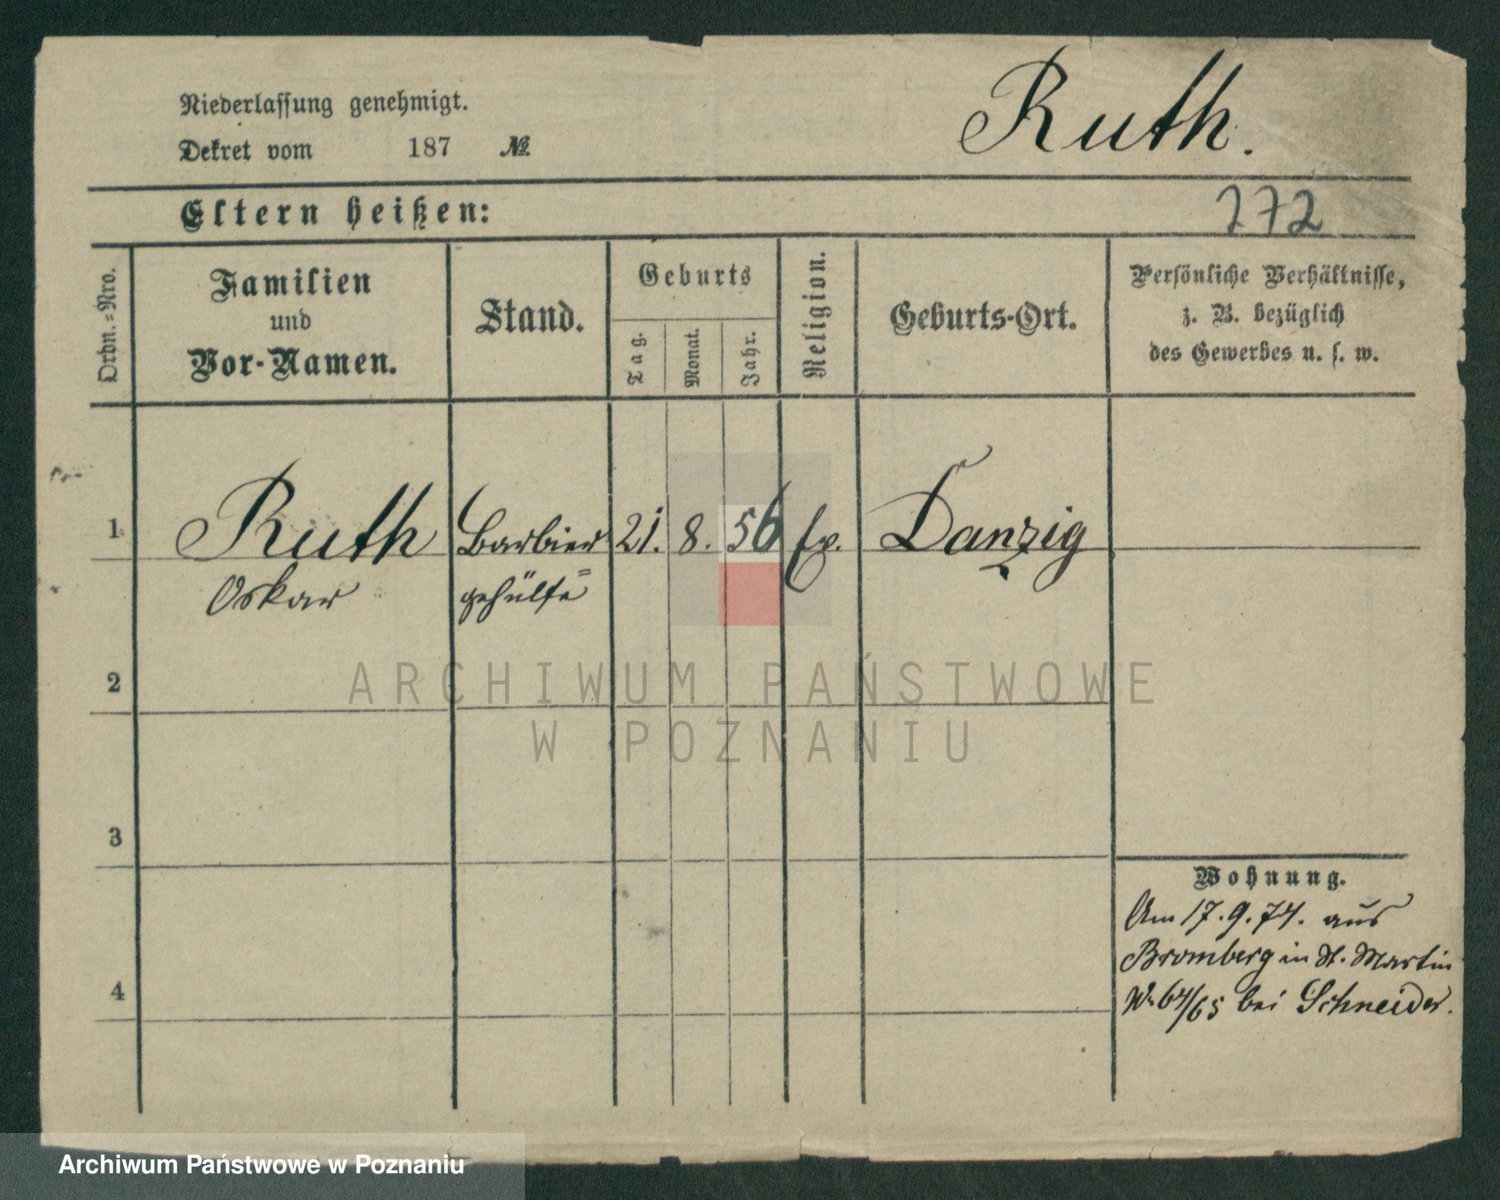 Niederlassung genehmigt.
Dekret vom 187 №
Ruth.
Eltern heißen:
272
Ordn.-Nro.
Familien
und
Vor-Namen.
Stand.
Geburts
Tag.
Monat.
Jahr.
Religion.
Geburts-Ort.
Persönliche Verhältnisse,
z. B. bezüglich
des Gewerbes u. s. w.
1 Ruth Barbier 21. 8. 56 ev. Danzig
Oskar gehülfe
2
ARCHIWUM PAŃSTWOWE
W POZNANIU
3
Wohnung.
Am 17. 9. 74. aus
Bromberg in St. Martin
No 64/65 bei Schneider.
4
Archiwum Państwowe w Poznaniu